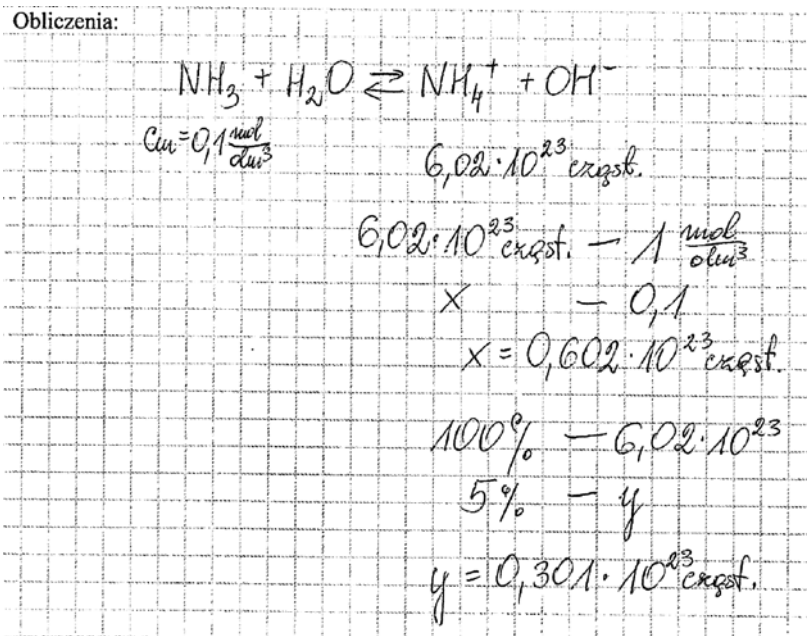 Obliczenia:
NH₃ + H₂O ⇄ NH₄⁺ + OH⁻
Cm=0,1 mol/dm³
6,02·10²³ cząst.
6,02·10²³ cząst. — 1 mol/dm³
x — 0,1
x = 0,602·10²³ cząst.
100% — 6,02·10²³
5% — y
y = 0,301·10²³ cząst.